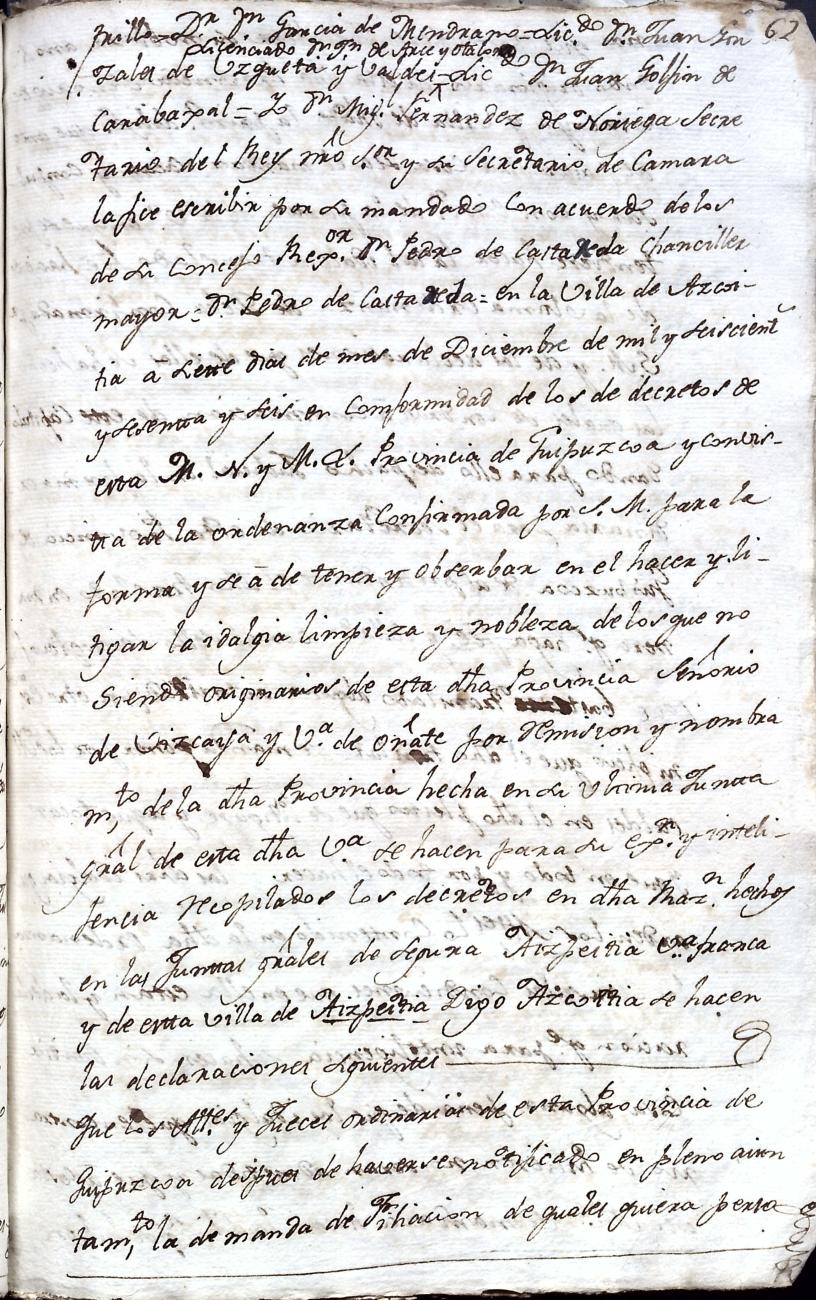 62
trillo = Dr. Dn. Garcia de Mendrano = Licdo. Dn. Juan Gon
Licenciado Dn. Gn. de Arce y otalora
zales de Uzqueta y Valdes = Licdo. Dn. Juan Golfin de
Carabaxal = Yo Dn. Migl. Fernandez de Noriega Secre
tario del Rey nro. Sor. y su Secretario de Camara
la fice escribir por su mandado Con acuerdo de los
de su Concejo Rexor. Dn. Pedro de Castañeda Chanciller
mayor = Dn. Pedro de Castañeda = en la Villa de Azcoi-
tia a siette dias de mes de Diciembre de mil y seiscient
y sesentta y seis en Comformidad de los de decretos de
estta M. N. y M. L. Provincia de Guipuzcoa y convis-
tta de la ordenanza Confirmada por S. M. para la
forma y se â de tener y Obserbar en el hacer y li-
tigar la idalgia limpieza y nobleza de los que no
Siendo originarios de esta dha Provincia Señorio
de Vizcaya y Va. de oñate por Remision y nombra
mto. de la dha Provincia hecha en su Ultima Juntta
gral de esta dha Va. se hacen para su exon. y inteli-
gencia recopilados los decretos en dha Razn. hechos
en las Junttas grales de Segura Aizpeitia Va. franca
y de estta villa de Aizpeitia Digo Azcoitia se hacen
las declaraciones siguientes
Que los Alttes. y Jueces ordinarios de esta Provincia de
Guipuzcoa despues de haverse notificado en pleno aiun
tamto. la demanda de Filiacion de quales quiera perso